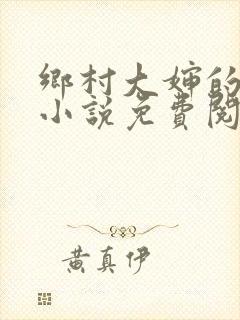 鄉村大嬸的
小說免費閱
黃真伊